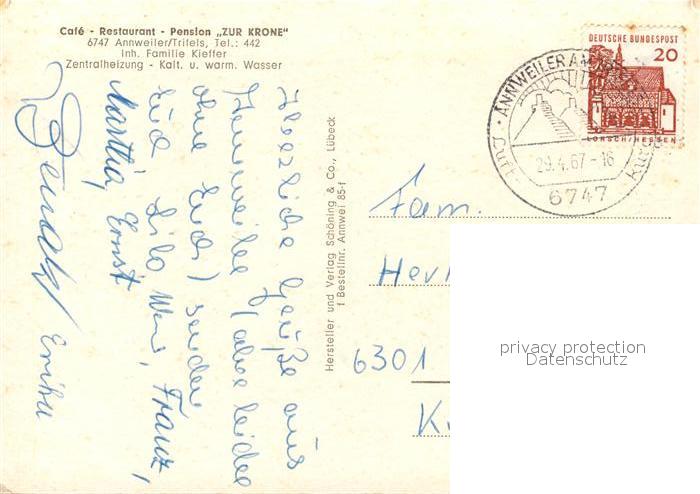 Café - Restaurant - Pension „ZUR KRONE"
6747 Annweiler/Trifels, Tel.: 442
Inh. Familie Kieffer
Zentralheizung - Kalt. u. warm. Wasser
Herzliche Grüße aus
Annweiler (aber leider
ohne Euch) senden
Euch Lilo, Franz,
Martha, Ernst
Erika
Hersteller und Verlag Schöning & Co., Lübeck
f Bestellnr. Annwei 85-f
DEUTSCHE BUNDESPOST
20
LORSCH/HESSEN
ANNWEILER AM
29.4.67-16
Luft-
6747
Fam.
6301
K
privacy protection
Datenschutz